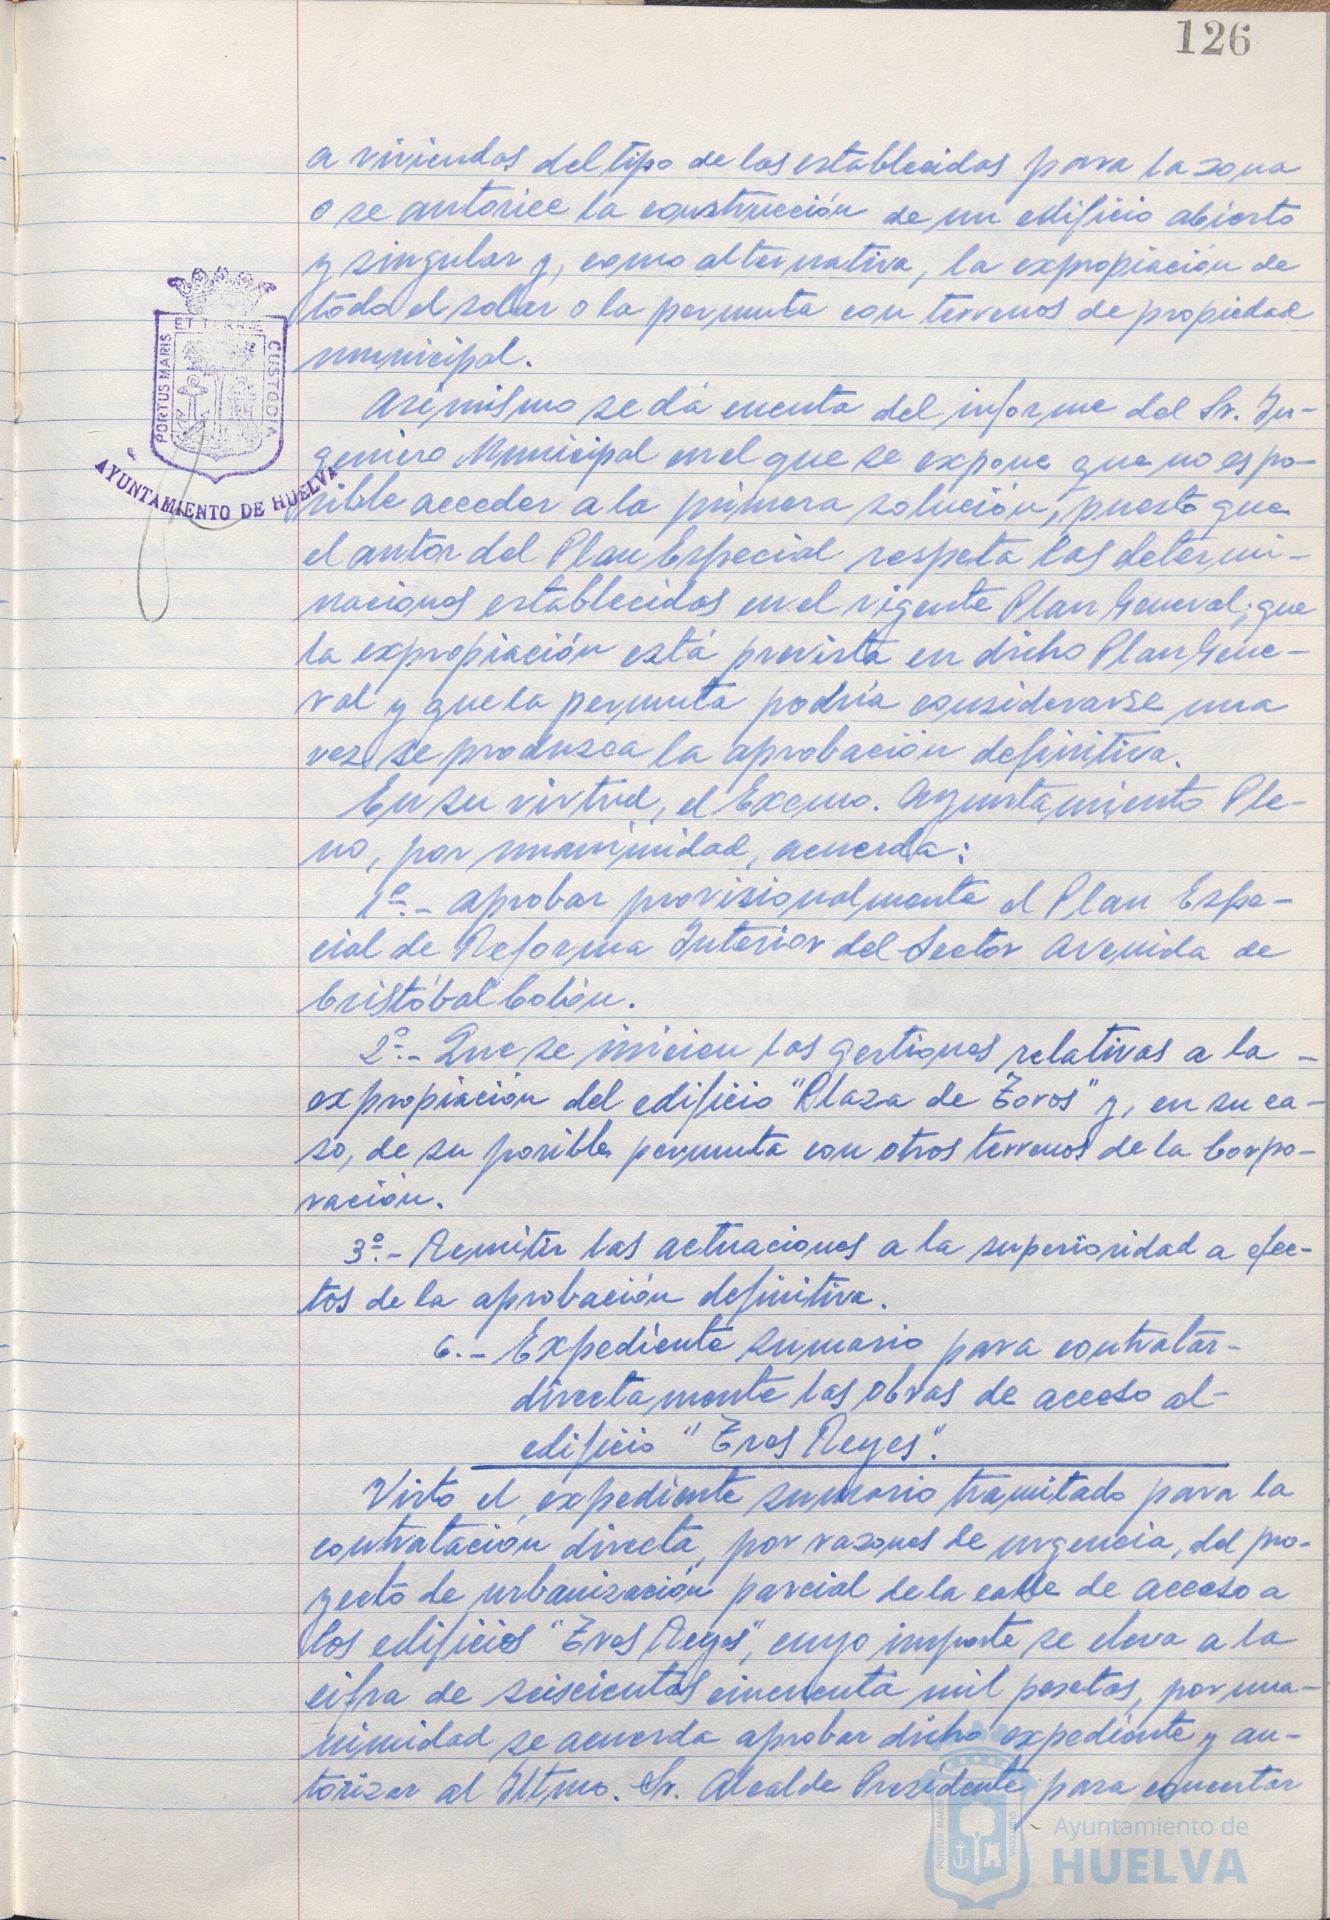 126
a viviendas del tipo de las establecidas para la zona
o se autorice la construcción de un edificio abierto
y singular y, como alternativa, la expropiación de
todo el solar o la permuta con terrenos de propiedad
municipal.
Asímismo se dá cuenta del informe del Sr. In-
geniero Municipal en el que se expone que no es po-
sible acceder a la primera solución, puesto que
el autor del Plan Especial respeta las determi-
naciones establecidas en el vigente Plan General; que
la expropiación está prevista en dicho Plan Gene-
ral y que la permuta podría considerarse una
vez se produzca la aprobación definitiva.
En su virtud, el Excmo. Ayuntamiento Ple-
no, por unanimidad, acuerda:
1º.- Aprobar provisionalmente el Plan Espe-
cial de Reforma Interior del Sector Avenida de
Cristóbal Colón.
2º.- Que se inicien las gestiones relativas a la -
expropiación del edificio "Plaza de Toros" y, en su ca-
so, de su posible permuta con otros terrenos de la Corpo-
ración.
3º.- Remitir las actuaciones a la superioridad a efec-
tos de la aprobación definitiva.
6.- Expediente sumario para contratar-
directamente las obras de acceso al-
edificio "Tres Reyes".
Visto el expediente sumario tramitado para la
contratación directa, por razones de urgencia, del pro-
yecto de urbanización parcial de la calle de acceso a
los edificios "Tres Reyes", cuyo importe se eleva a la
cifra de seiscientas cincuenta mil pesetas, por una-
nimidad se acuerda aprobar dicho expediente y au-
torizar al Iltmo. Sr. Alcalde Presidente para concertar
PORTUS MARIS
ET TERRÆ
CUSTODIA
AYUNTAMIENTO DE HUELVA
PORTUS MARIS
CUSTODIA
Ayuntamiento de
HUELVA